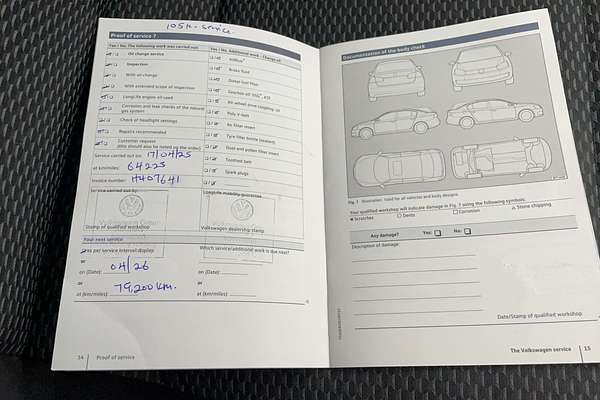 105K - Service
Proof of service 7
Yes / No: The following work was carried out:
Oil change service
Inspection
With oil change
With extended scope of inspection
LongLife engine oil used
Corrosion and leak checks of the natural gas system
Check of headlight settings
Repairs recommended
Customer request
(this should also be noted on the order)
Service carried out on: 17/04/25
at km/miles: 64225
Invoice number: H407641
Service carried out by:
Volkswagen
Stamp of qualified workshop
Your next service
As per service interval display:
or
on (Date): 04/26
or
at (km/miles): 79,200 km.
34 Proof of service
Yes / No, Additional work / Change of:
AdBlue®
Brake fluid
Diesel fuel filter
Gearbox oil: DSG®, ATF
Poly V-belt
Air filter insert
Tyre filler bottle (sealant)
Dust and pollen filter insert
Toothed belt
Spark plugs
LongLife mobility guarantee
Volkswagen dealership stamp
Which service/additional work is due next?
on (Date):
or
at (km/miles):
Documentation of the body check
Fig. 7 Illustration. Valid for all vehicles and body designs.
Your qualified workshop will indicate damage in Fig. 7 using the following symbols:
Scratches
Dents
Corrosion
Stone chipping
Any damage? Yes: No:
Description of damage:
Date/Stamp of qualified workshop
The Volkswagen service 15